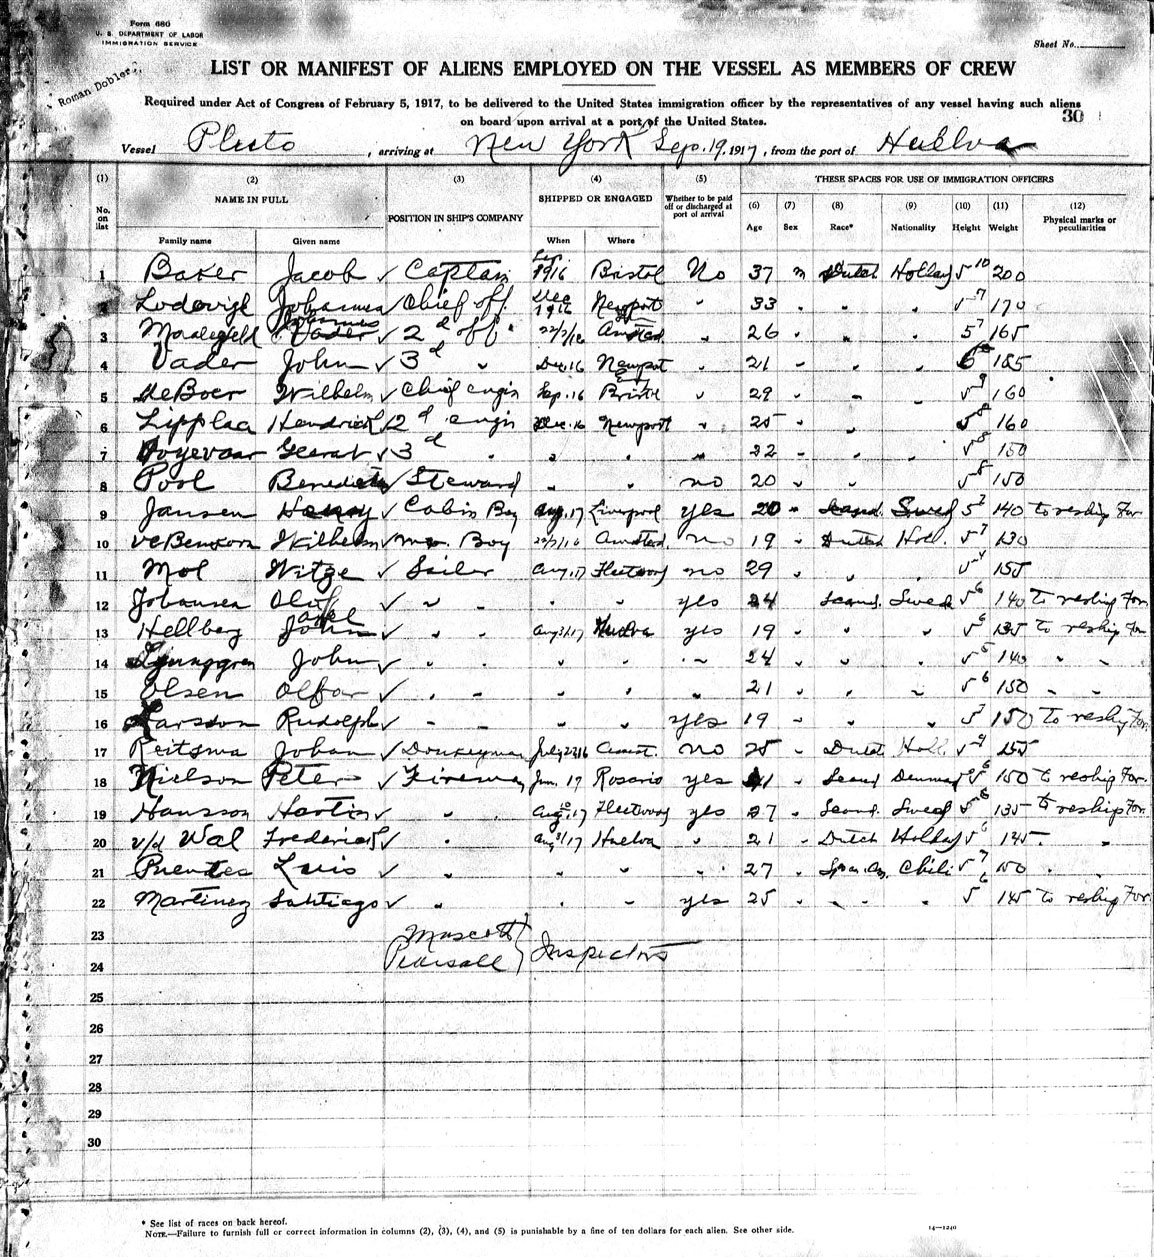 Form 680
U. S. DEPARTMENT OF LABOR
IMMIGRATION SERVICE
Sheet No.
Roman Dobler
LIST OR MANIFEST OF ALIENS EMPLOYED ON THE VESSEL AS MEMBERS OF CREW
Required under Act of Congress of February 5, 1917, to be delivered to the United States immigration officer by the representatives of any vessel having such aliens
on board upon arrival at a port of the United States.
30
Vessel Pluto, arriving at New York Sep. 19, 1917, from the port of Huelva
(1) (2) (3) (4) (5) THESE SPACES FOR USE OF IMMIGRATION OFFICERS
No. on list NAME IN FULL POSITION IN SHIP'S COMPANY SHIPPED OR ENGAGED Whether to be paid off or discharged at port of arrival (6) Age (7) Sex (8) Race* (9) Nationality (10) Height (11) Weight (12) Physical marks or peculiarities
Family name Given name When Where
1 Baker Jacob ✓ Captain 1916 Bristol No 37 m Dutch Holland 5 10 200
2 Johannes ✓ Chief off. Dec 1916 Newport " 33 " " " 5 7 170
3 ✓ 2d off " " 26 " " " 5 7 165
4 Vader John ✓ 3d " Dec. 16 Newport " 21 " " " 185
5 de Boer Wilhelm ✓ Chief engin Sep. 16 Bristol " 29 " " " 5 9 160
6 Hendrick ✓ 2d engin Dec. 16 Newport " 25 " " " 5 8 160
7 Geerat ✓ 3d " " " " 22 " " " 5 8 150
8 Pool ✓ Steward " " no 20 " " " 5 8 150
9 Jansen Henry ✓ Cabin Boy Aug. 17 Liverpool yes 20 " Scand. Swed 5 7 140 to reship For.
10 Wilhelm ✓ Boy no 19 " Dutch Holl. 5 7 130
11 Mol Witze ✓ Sailor Aug. 17 Fleetwood no 29 " " " 5 4 155
12 Johansen Olaf ✓ " " " " yes 24 " Scand. Swed 5 6 140 to reship For.
13 Hellberg John ✓ " " Aug 31 17 Huelva yes 19 " " " 5 6 135 to reship For
14 John ✓ " " " " " 24 " " " 5 5 140 " "
15 Olsen ✓ " " " " " 21 " " " 5 6 150 " "
16 Larsson Rudolph ✓ " " " " yes 19 " " " 5 7 150 to reship For.
17 Reitsma Johan ✓ Donkeyman July 22 16 no 25 " Dutch Holl. 5 9 155
18 Nielson Peter ✓ Fireman Jun. 17 Rosario yes 41 " Scand Denmark 5 6 150 to reship For.
19 Hansson ✓ " " Aug. 17 Fleetwood yes 27 " Scand. Swed 5 6 135 to reship For.
20 v/d Wal Frederick ✓ " Aug 31 17 Huelva " 21 " Dutch Holland 5 6 145 "
21 Puentes Luis ✓ " " " " 27 " Span. Am. Chili 5 7 150
22 Martinez Santiago ✓ " " " yes 25 " " " 5 6 145 to reship For.
23 Muscott
24 Pearsall } Inspectors
25
26
27
28
29
30
* See list of races on back hereof.
NOTE.—Failure to furnish full or correct information in columns (2), (3), (4), and (5) is punishable by a fine of ten dollars for each alien. See other side.
14—1240